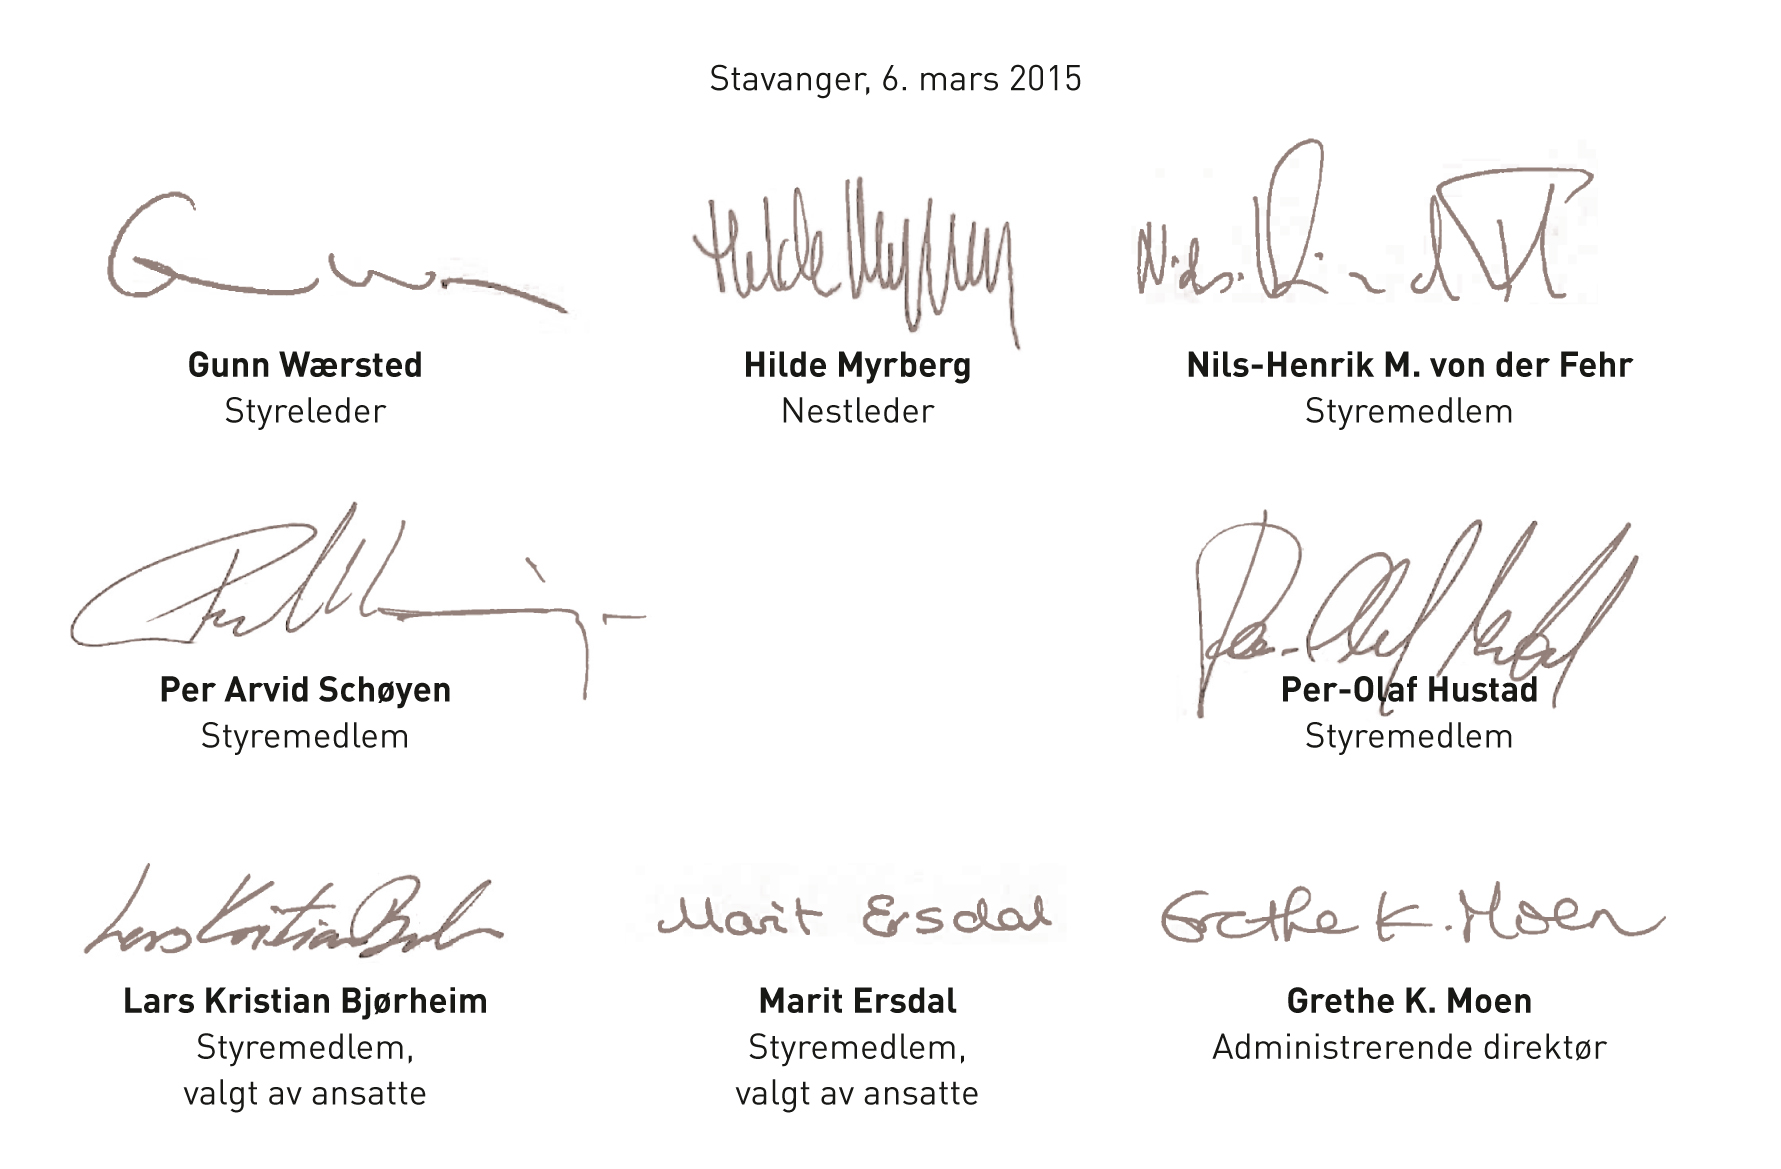 Stavanger, 6. mars 2015
Gunn Wærsted
Styreleder
Hilde Myrberg
Nestleder
Nils-Henrik M. von der Fehr
Styremedlem
Per Arvid Schøyen
Styremedlem
Per-Olaf Hustad
Per-Olaf Hustad
Styremedlem
Lars Kristian
Lars Kristian Bjørheim
Styremedlem,
valgt av ansatte
Marit Ersdal
Marit Ersdal
Styremedlem,
valgt av ansatte
Grethe K. Moen
Grethe K. Moen
Administrerende direktør